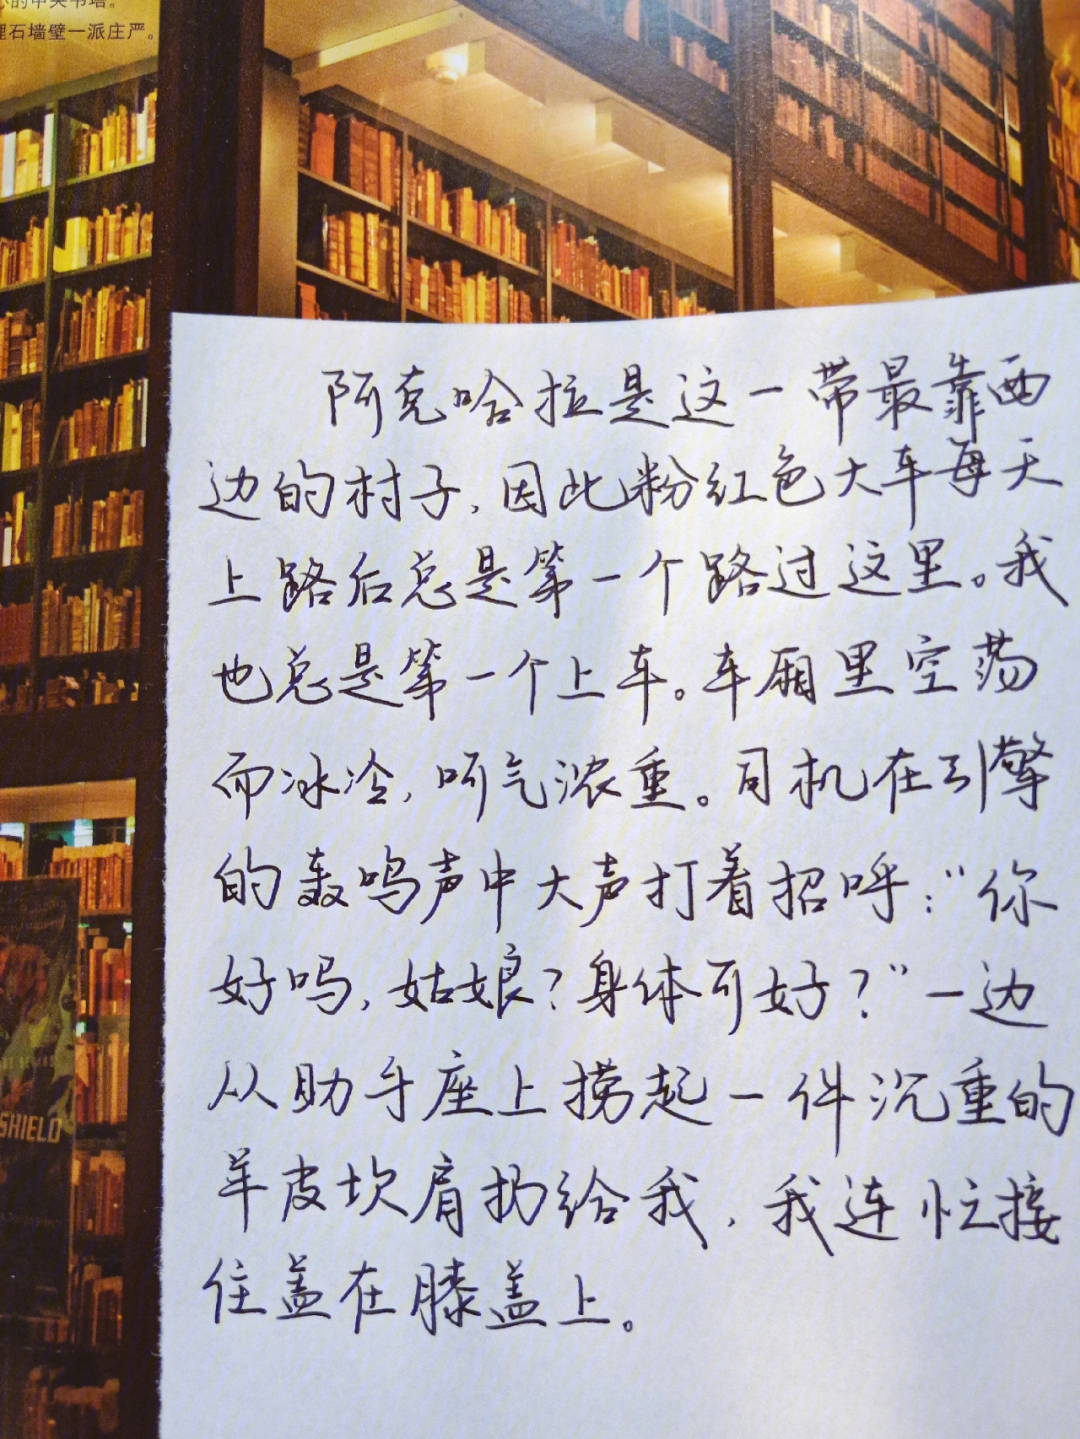 理石墙壁一派庄严。
阿克哈拉是这一带最靠西
边的村子,因此粉红色大车每天
上路后总是第一个路过这里。我
也总是第一个上车。车厢里空荡
而冰冷,呵气浓重。司机在引擎
的轰鸣声中大声打着招呼:“你
好吗,姑娘?身体可好?”一边
从助手座上捞起一件沉重的
羊皮坎肩扔给我,我连忙接
住盖在膝盖上。
SHIELD